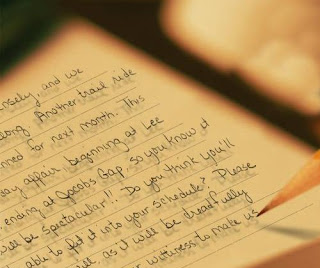 nsely, and we
long. Another trail ride
nned for next month. This
day affair beginning at Lee
ending at Jacobs Gap, so you know it
will be spectacular!! Do you think you'll
able to fit it into your schedule? Please
ll, as it will be dreadfully
r wittiness to make us